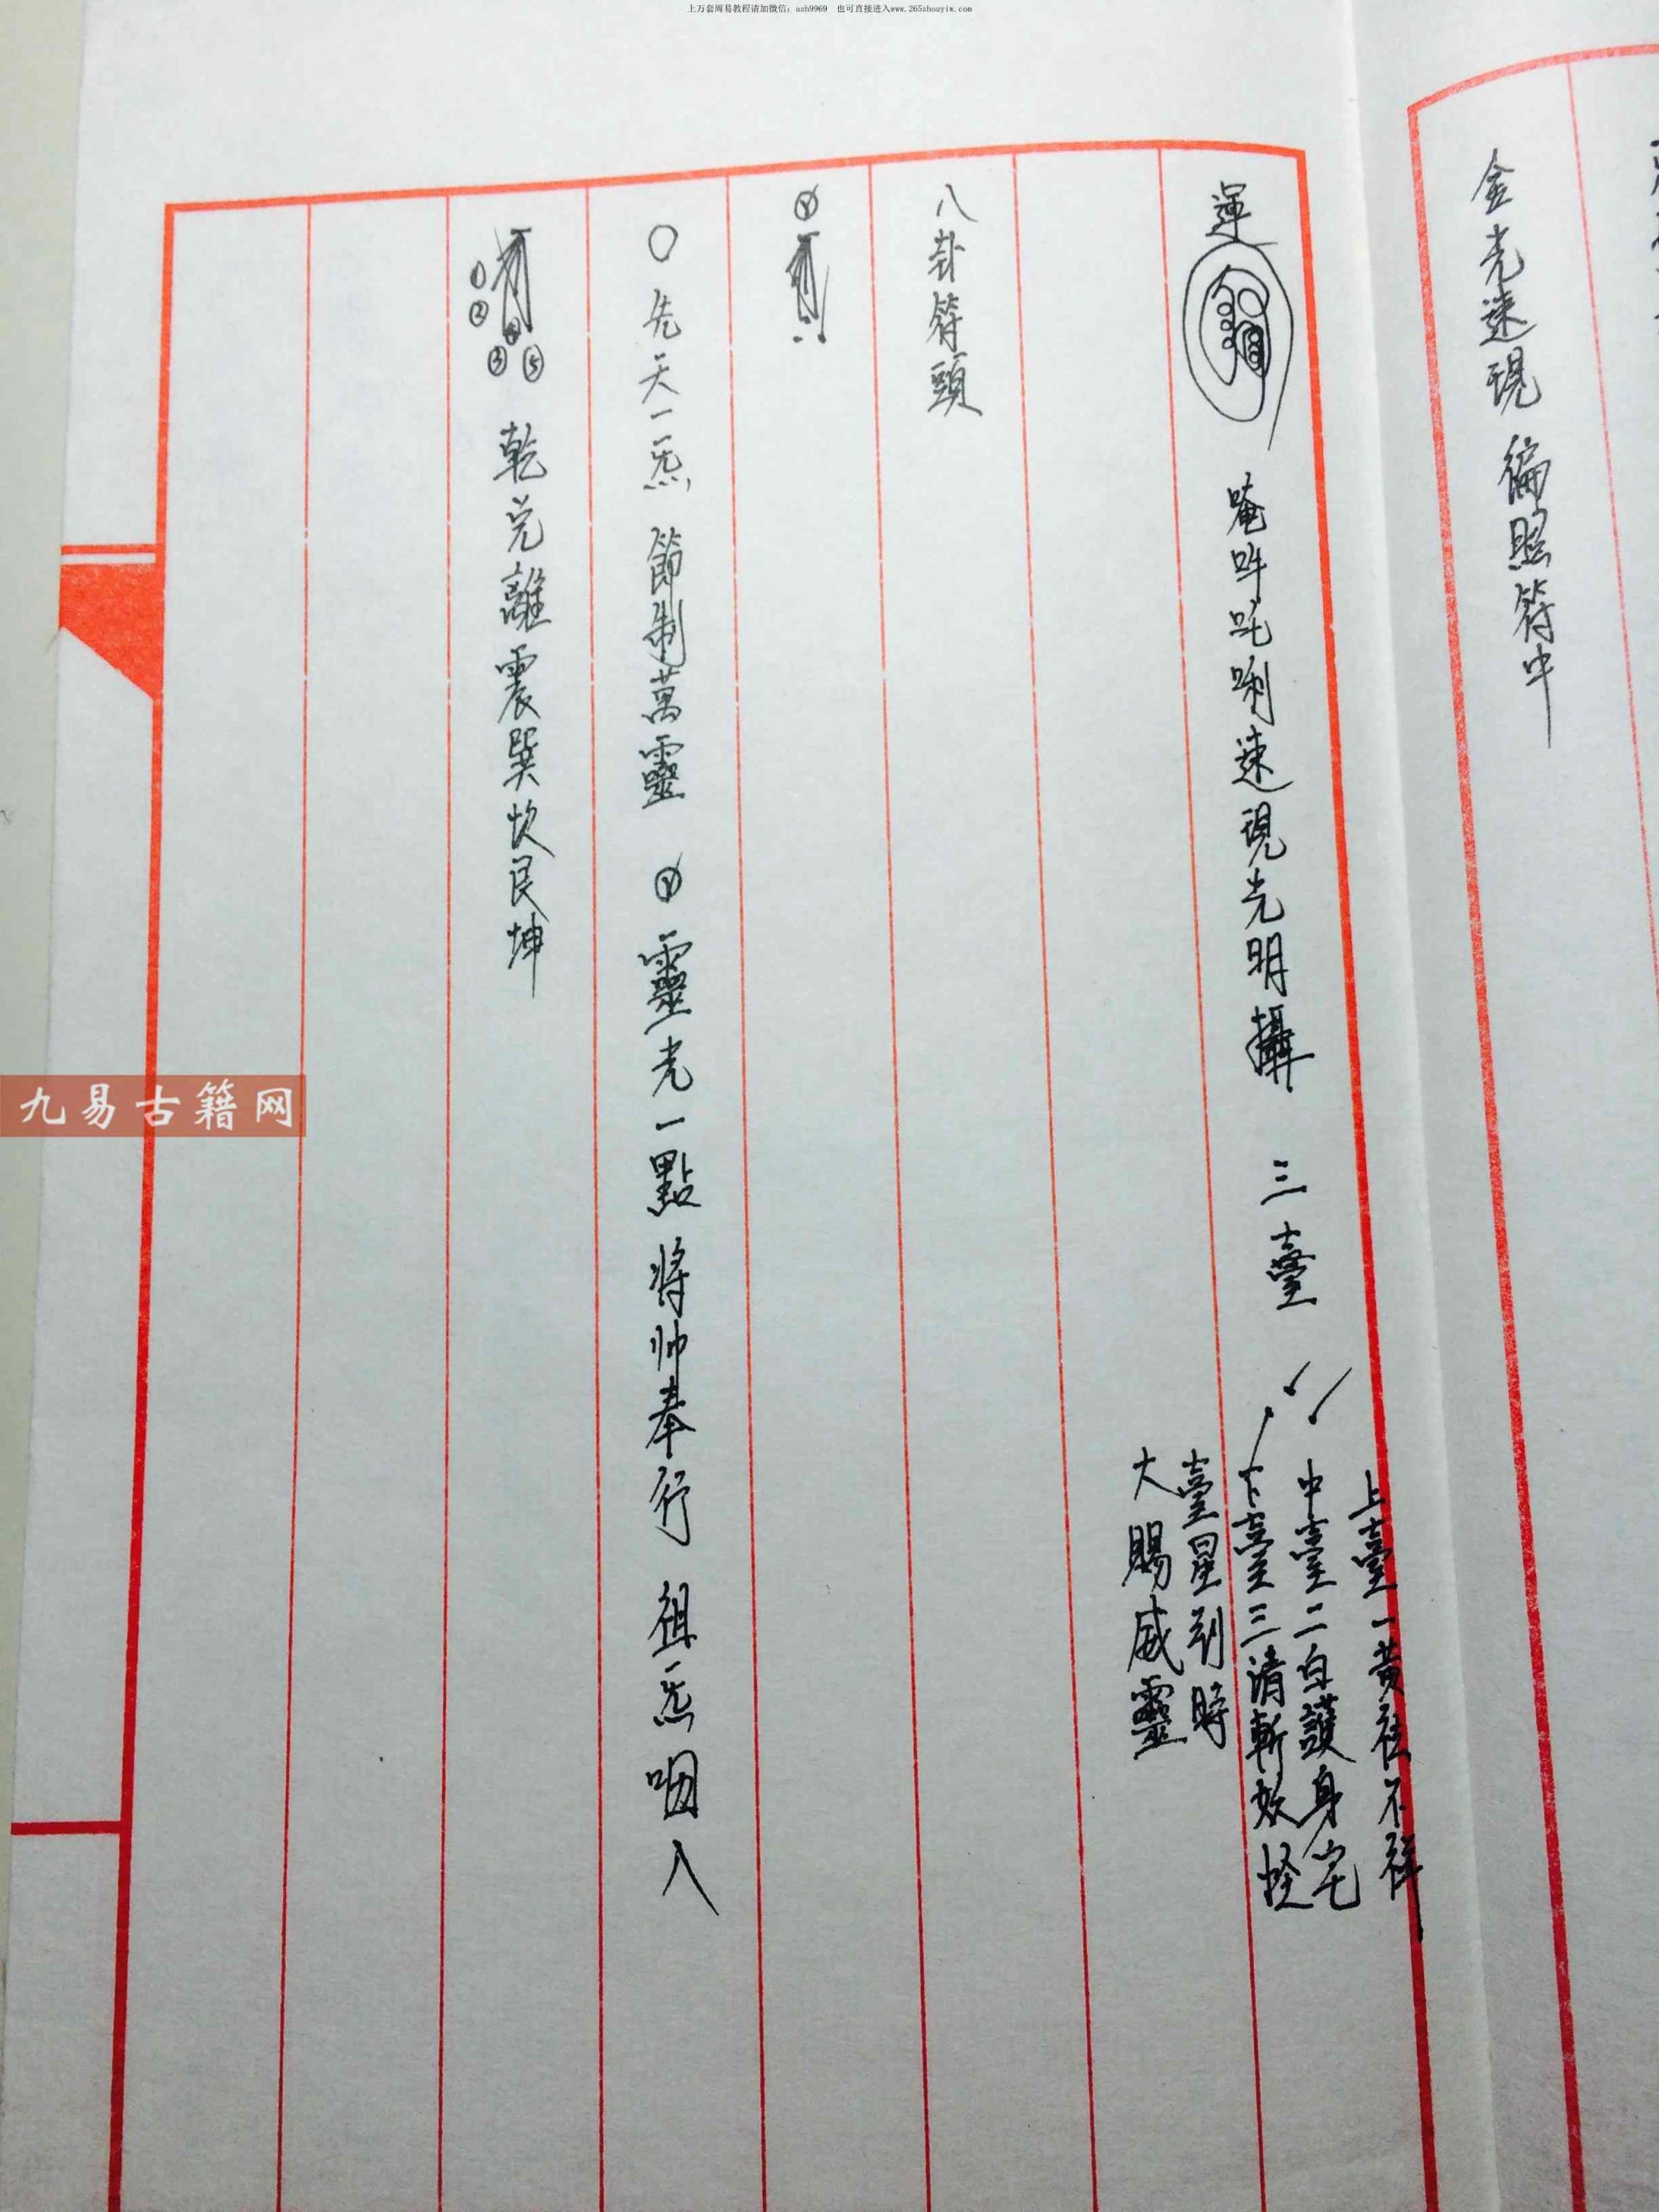 上万套周易教程请加微信：azh9969 也可直接进入www.265zhouyiw.com
金光速現 徧照符中
運 唵吽吒唎速現光明攝 三臺
上臺一黃祛不祥
中臺二白護身宅
下臺三清斬妖怪
臺星到時
大賜威靈
八卦符頭
〇先天一炁 節制萬靈 靈光一點 將帅奉行 祖炁咽入
① ② ③ ④ ⑤ 乾兑離震巽坎艮坤
九易古籍网